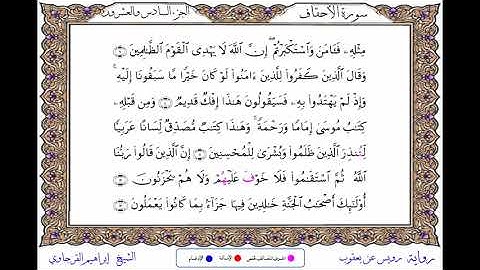 سورة الأحقاف الجزء السادس والعشرون
مِثْلِهِ فَـَٔامَنَ وَٱسْتَكْبَرْتُمْ إِنَّ ٱللَّهَ لَا يَهْدِى ٱلْقَوْمَ ٱلظَّـٰلِمِينَ
وَقَالَ ٱلَّذِينَ كَفَرُوا۟ لِلَّذِينَ ءَامَنُوا۟ لَوْ كَانَ خَيْرًا مَّا سَبَقُونَآ إِلَيْهِ
وَإِذْ لَمْ يَهْتَدُوا۟ بِهِ فَسَيَقُولُونَ هَـٰذَآ إِفْكٌ قَدِيمٌ وَمِن قَبْلِهِ
كِتَـٰبُ مُوسَىٰٓ إِمَامًا وَرَحْمَةً وَهَـٰذَا كِتَـٰبٌ مُّصَدِّقٌ لِّسَانًا عَرَبِيًّا
لِّتُنذِرَ ٱلَّذِينَ ظَلَمُوا۟ وَبُشْرَىٰ لِلْمُحْسِنِينَ إِنَّ ٱلَّذِينَ قَالُوا۟ رَبُّنَا
ٱللَّهُ ثُمَّ ٱسْتَقَـٰمُوا۟ فَلَا خَوْفَ عَلَيْهُمْ وَلَا هُمْ يَحْزَنُونَ
أُو۟لَـٰٓئِكَ أَصْحَـٰبُ ٱلْجَنَّةِ خَـٰلِدِينَ فِيهَا جَزَآءًۢ بِمَا كَانُوا۟ يَعْمَلُونَ
رواية رويس عن يعقوب الإمالة الإدغام الشيخ إبراهيم الفرجاوي